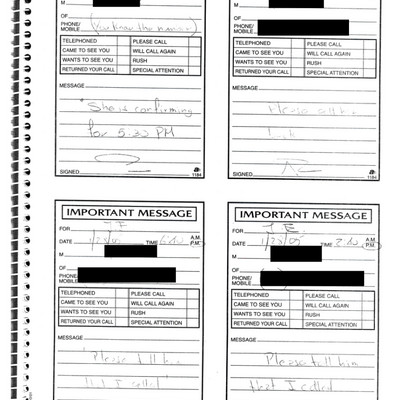 M
OF
PHONE/
MOBILE (You know the number)
TELEPHONED PLEASE CALL
CAME TO SEE YOU WILL CALL AGAIN
WANTS TO SEE YOU RUSH
RETURNED YOUR CALL SPECIAL ATTENTION
MESSAGE
"She is confirming
for 5:30 PM
SIGNED 1184
M
OF
PHONE/
MOBILE
TELEPHONED PLEASE CALL
CAME TO SEE YOU WILL CALL AGAIN
WANTS TO SEE YOU RUSH
RETURNED YOUR CALL SPECIAL ATTENTION
MESSAGE
Please call him
SIGNED 1184
IMPORTANT MESSAGE
FOR J.E.
DATE 1/23/05 TIME A.M.
P.M.
M
OF
PHONE/
MOBILE
TELEPHONED PLEASE CALL
CAME TO SEE YOU WILL CALL AGAIN
WANTS TO SEE YOU RUSH
RETURNED YOUR CALL SPECIAL ATTENTION
MESSAGE
"Please tell him
that I called"
IMPORTANT MESSAGE
FOR J.E.
DATE 1/23/05 TIME A.M.
P.M.
M
OF
PHONE/
MOBILE
TELEPHONED PLEASE CALL
CAME TO SEE YOU WILL CALL AGAIN
WANTS TO SEE YOU RUSH
RETURNED YOUR CALL SPECIAL ATTENTION
MESSAGE
Please tell him
that I called